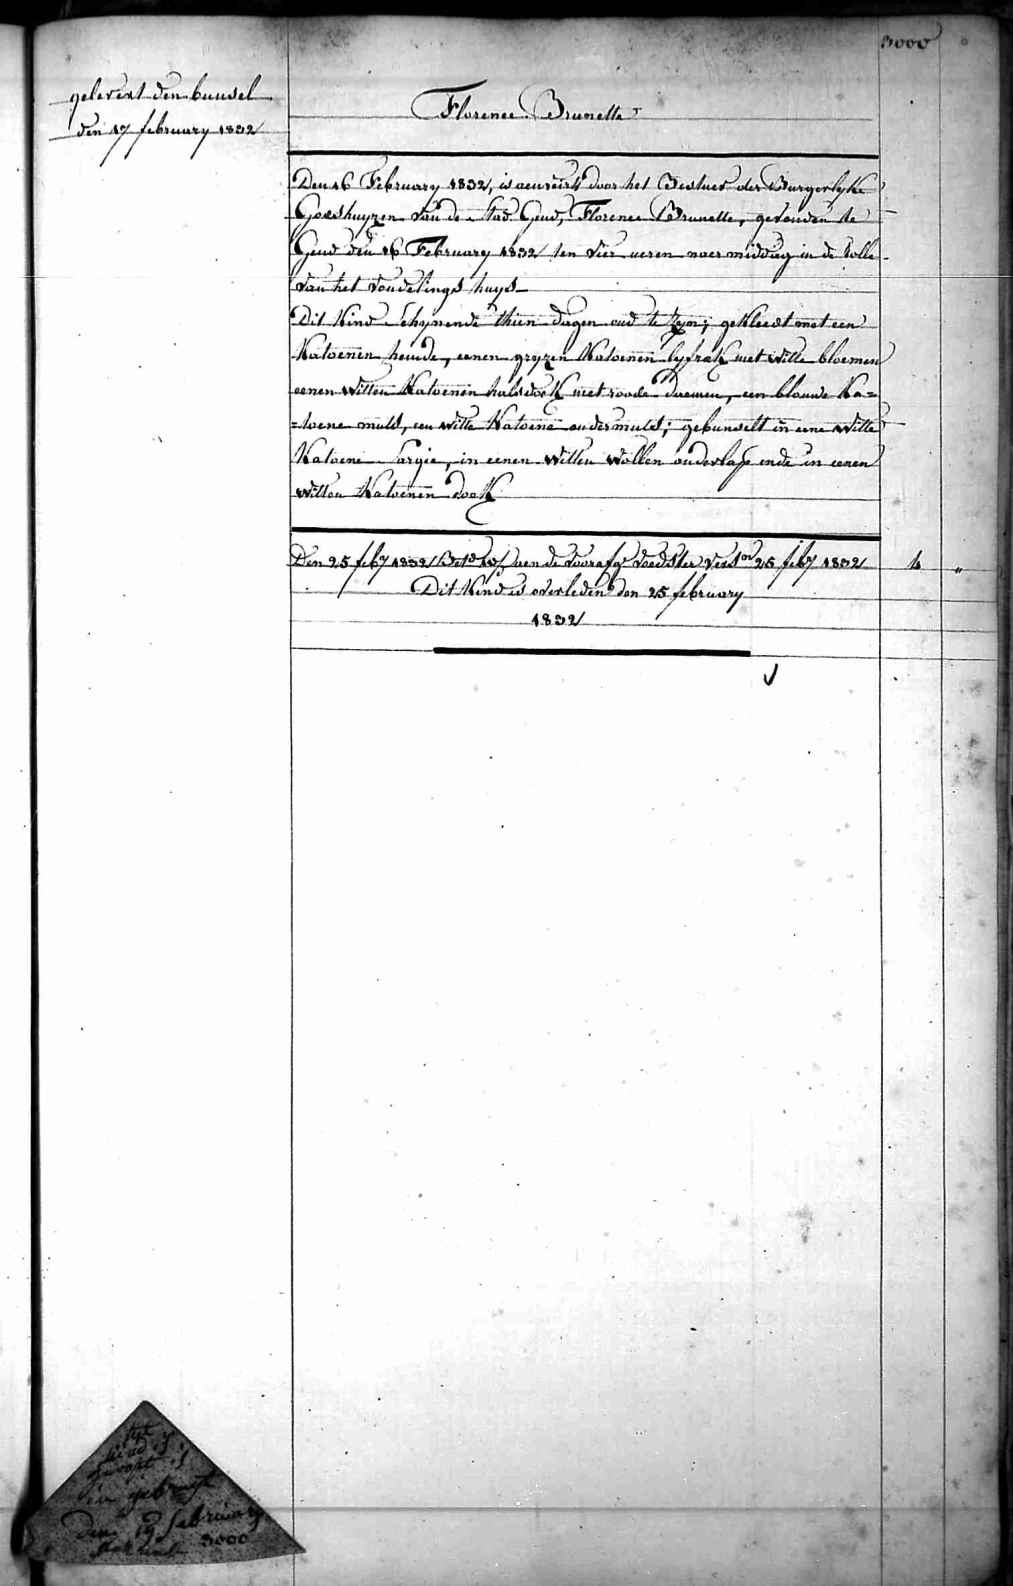 3000
gelevert den bunsel
den 17 february 1832
Florence Brunelle
Den 16 February 1832, is aenveirt door het Bestuer der Burgerlyke
Godshuyzen van de Stad Gend, Florence Brunelle, gevonden te
Gend den 16 February 1832 ten vier ueren naermiddag in de Rolle
van het Vondelings huys
Dit Kind Schynende thien dagen oud te Zyn; gekleed met een
Katoenen hemde, eenen gryzen Katoenen lyfrak met witte bloemen
eenen witten Katoenen halsdoek met roode daemen, een blauwe Ka=
=toene muts, een witte Katoene ondermuts; gebunselt in eene witte
Katoene Sargie, in eenen witten wollen onderlap ende in eenen
witten Katoenen doek
Den 25 feby 1832 aen de voorafge voedster 25 feby 1832 4 "
Dit Kind is overleden den 25 february
1832
kind is
in gebragt
den 19 february
3000